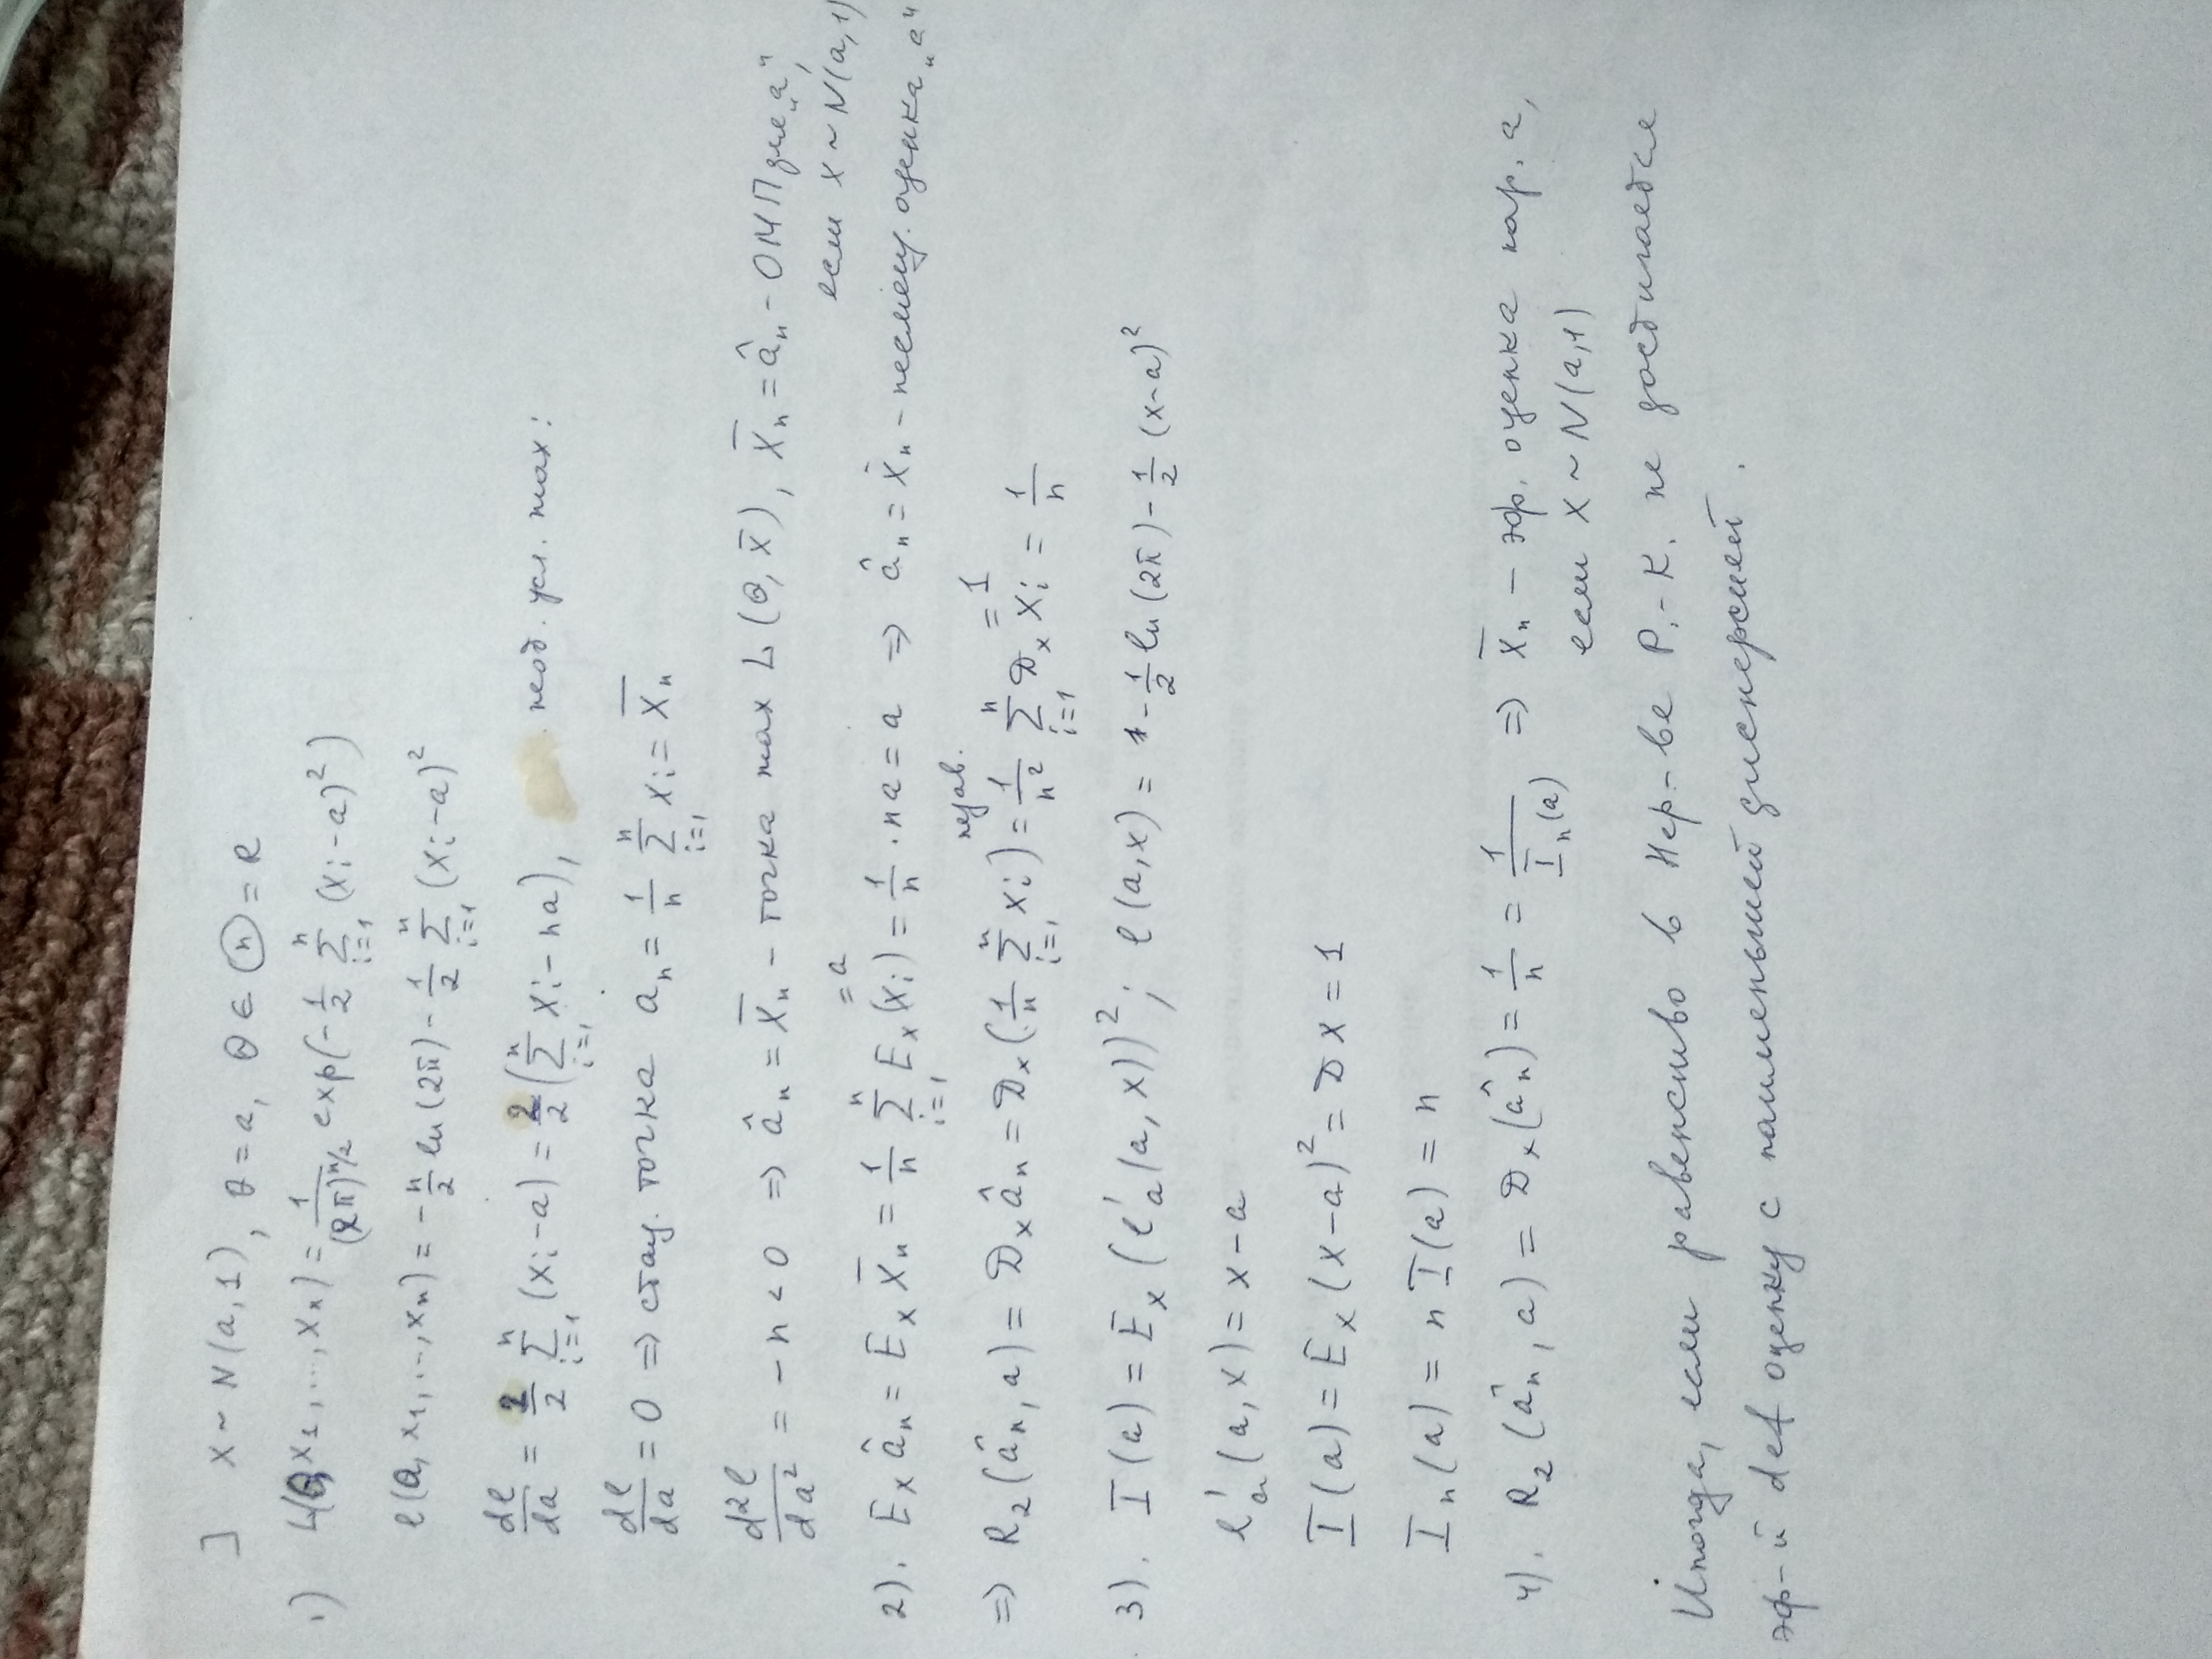 ] X ~ N(a,1), θ = a, θ ∈ Ⓗ = R
1) L(θ, x₁, ..., xₙ) = 1/(2π)^(n/2) exp(-1/2 Σ_{i=1}^{n} (xᵢ - a)²)
ℓ(θ, x₁, ..., xₙ) = -n/2 ln(2π) - 1/2 Σ_{i=1}^{n} (xᵢ - a)²
dℓ/da = 2/2 Σ_{i=1}^{n} (xᵢ - a) = 2/2 (Σ_{i=1}^{n} xᵢ - na), необ. усл. max:
dℓ/da = 0 ⇒ стац. точка aₙ = 1/n Σ_{i=1}^{n} xᵢ = X̄ₙ
d²ℓ/da² = -n < 0 ⇒ âₙ = X̄ₙ - точка max L(θ, x̄), X̄ₙ = âₙ - ОМП для „a",
если X ~ N(a,1)
2). Eₓ âₙ = Eₓ X̄ₙ = 1/n Σ_{i=1}^{n} Eₓ(xᵢ) = 1/n · na = a ⇒ âₙ = x̄ₙ - несмещ. оценка „a"
= a
⇒ R₂(âₙ, a) = Dₓ âₙ = Dₓ(1/n Σ_{i=1}^{n} xᵢ) = 1/n² Σ_{i=1}^{n} Dₓ xᵢ = 1/n
незав.
= 1
3). I(a) = Eₓ(ℓ'ₐ(a, x))²; ℓ(a,x) = -1/2 ln(2π) - 1/2 (x-a)²
ℓ'ₐ(a, x) = x - a
I(a) = Eₓ(x-a)² = DX = 1
Iₙ(a) = n I(a) = n
4). R₂(âₙ, a) = Dₓ(âₙ) = 1/n = 1/Iₙ(a) ⇒ x̄ₙ - эф. оценка пар. a,
если X ~ N(a,1)
Иногда, если равенство в нер-ве Р.-К. не достигается
эф-й def оценку с наименьшей дисперсией.